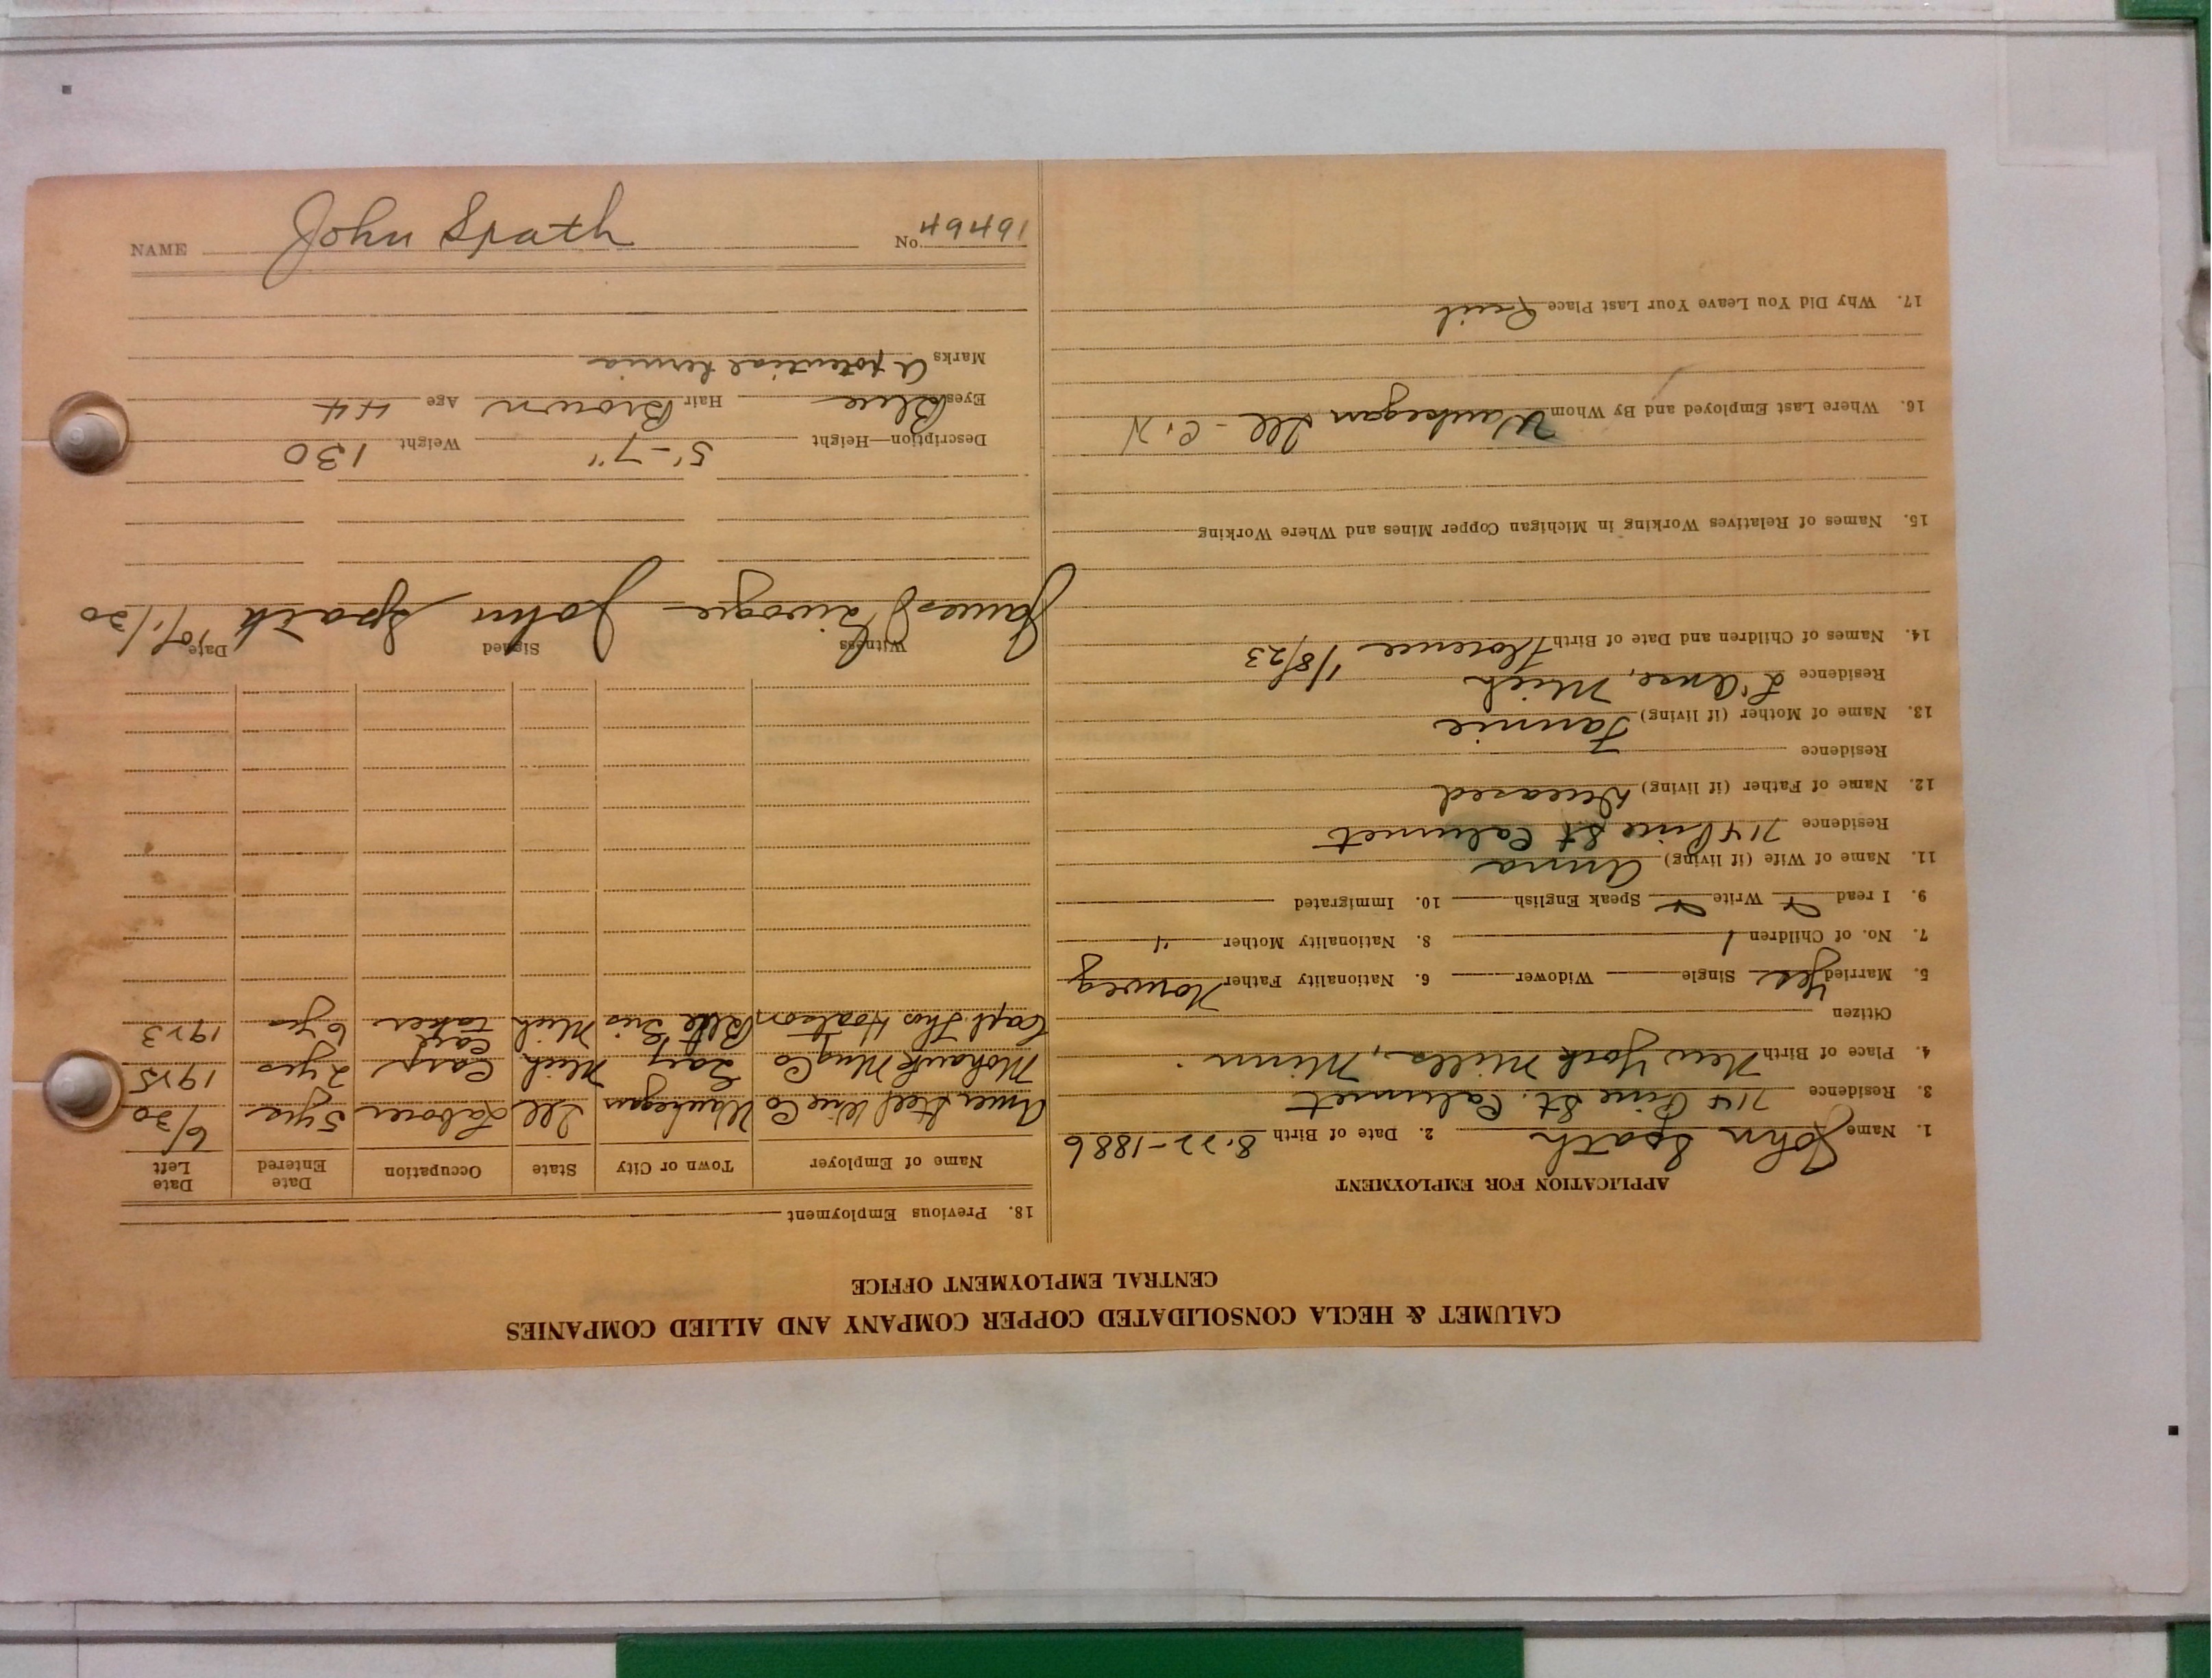 CALUMET & HECLA CONSOLIDATED COPPER COMPANY AND ALLIED COMPANIES
CENTRAL EMPLOYMENT OFFICE
APPLICATION FOR EMPLOYMENT
1. Name John Spath 2. Date of Birth 8-22-1886
3. Residence 714 Pine St. Calumet
4. Place of Birth New York Mills, Minn.
Citizen
5. Married Yes Single Widower 6. Nationality Father Norweg
7. No. of Children 1 8. Nationality Mother "
9. I read Write Speak English 10. Immigrated
11. Name of Wife (if living) Anna
Residence 714 Pine St Calumet
12. Name of Father (if living) Deceased
Residence
13. Name of Mother (if living) Fannie
Residence L'Anse, Mich
14. Names of Children and Date of Birth Florence 1/8/23
15. Names of Relatives Working in Michigan Copper Mines and Where Working
16. Where Last Employed and By Whom Waukegan Ill -
17. Why Did You Leave Your Last Place Quit
18. Previous Employment
Name of Employer Town or City State Occupation Date Entered Date Left
Amer Steel Wire Co Waukegan Ill Laborer 5 yrs 6/30
Mohawk Mng Co Gay Mich Carp 2 yrs 1925
Capt Thos Hoatson Mich Care taker 6 yrs 1923
Witness Signed Date
James John Spath 10/1/30
Description—Height 5'-7" Weight 130
Eyes Blue Hair Brown Age 44
Marks A potential hernia
NAME John Spath No. 49491